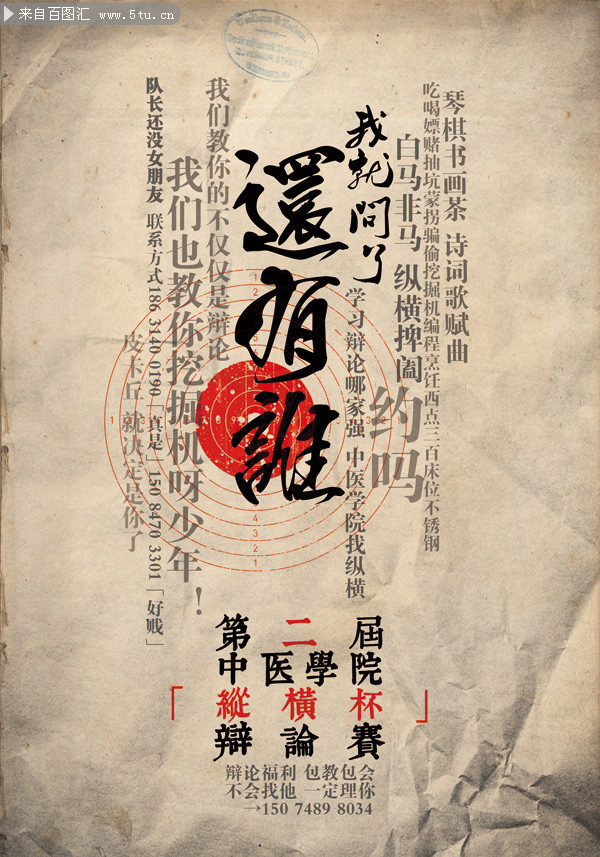 来自百图汇 www.5tu.cn
琴棋书画茶 诗词歌赋曲
吃喝嫖赌抽坑蒙拐骗偷挖掘机编程烹饪西点三百床位不锈钢
白马非马 纵横捭阖
约吗
我就問了
学习辩论哪家强 中医学院找纵横
還有誰
我们教你的不仅仅是辩论
我们也教你挖掘机呀少年！
队长还没女朋友 联系方式186 3140 0190「真是」150 8470 3301「好贱」
皮卡丘 就决定是你了
第二屆
中医學院
「縱橫杯」
辯論賽
辩论福利 包教包会
不会找他 一定理你
→150 7489 8034